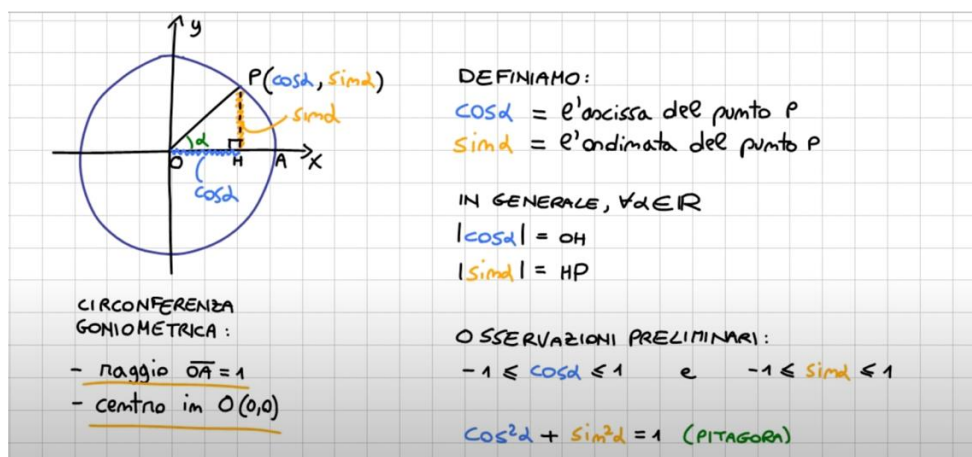 y
P(cosα, sinα)
sinα
α
O
H
A
x
cosα
CIRCONFERENZA
GONIOMETRICA:
- raggio O̅A̅ = 1
- centro in O (0,0)
DEFINIAMO:
cosα = l'ascissa del punto P
sinα = l'ordinata del punto P
IN GENERALE, ∀α∈ℝ
|cosα| = OH
|sinα| = HP
OSSERVAZIONI PRELIMINARI:
-1 ≤ cosα ≤ 1 e -1 ≤ sinα ≤ 1
cos²α + sin²α = 1 (PITAGORA)